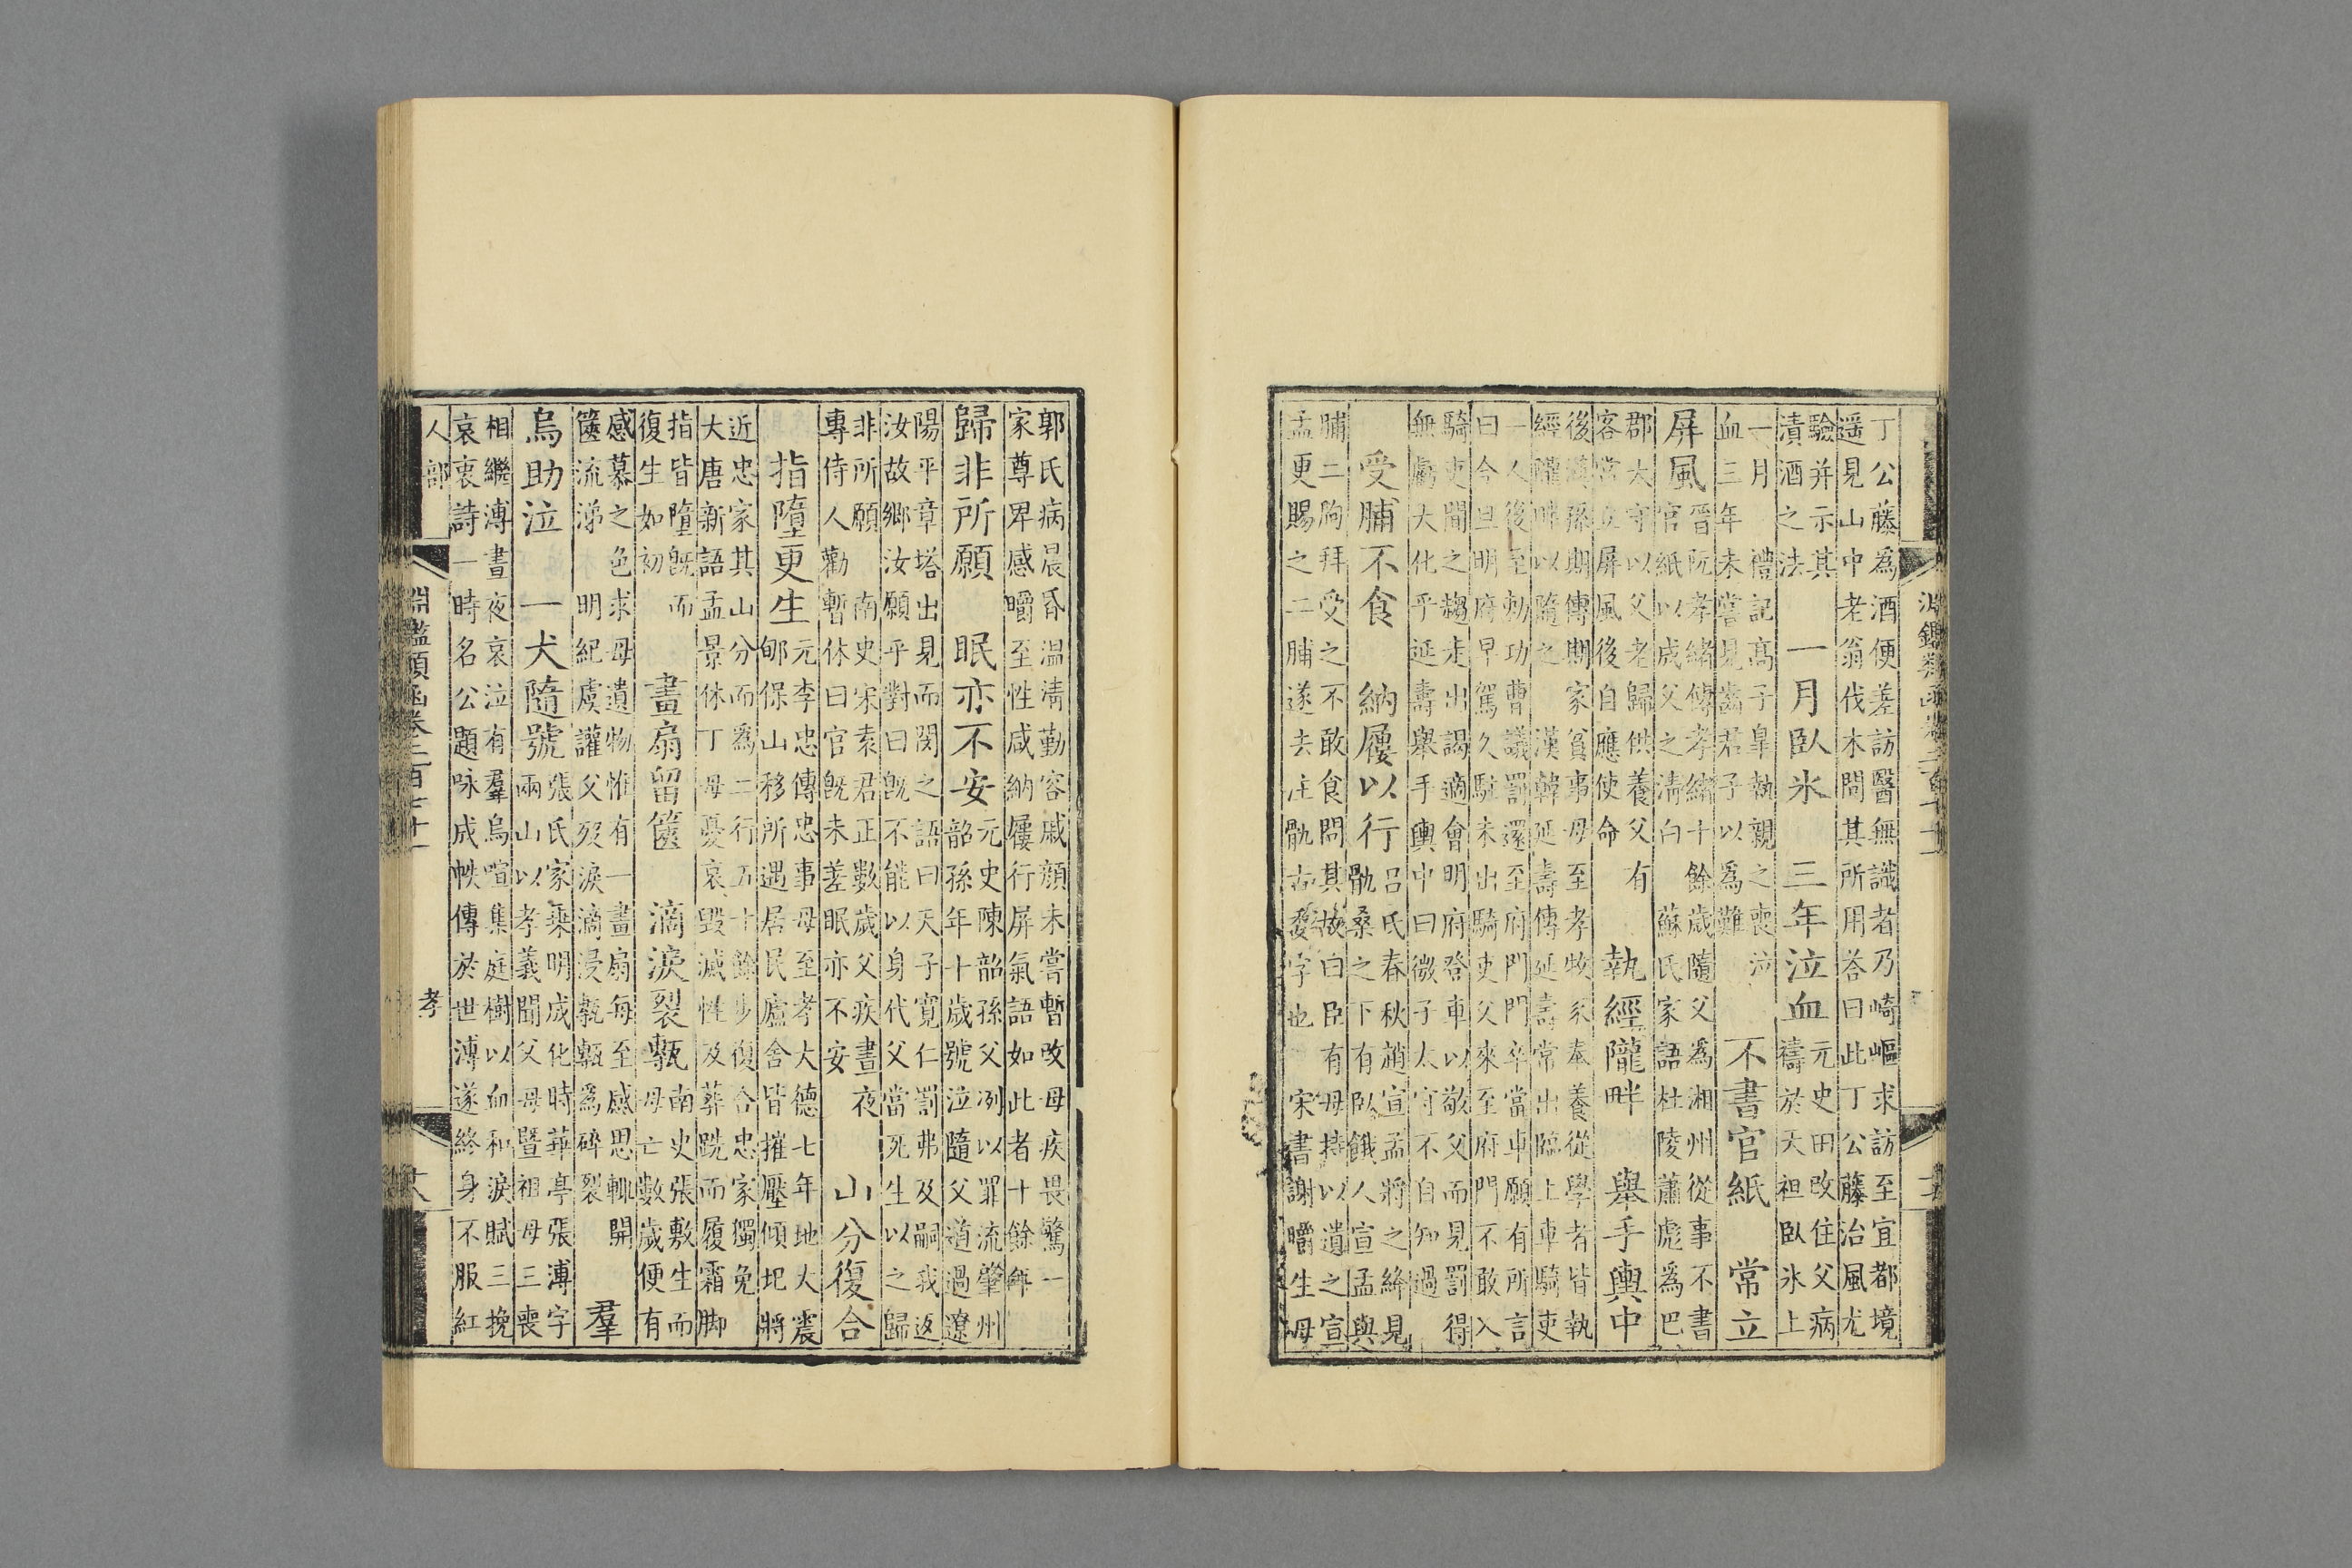 淵鑑類函卷二百七十一
丁公藤為酒便差訪醫無識者乃崎嶇求訪至宜都境
遥見山中老翁伐木問其所用荅曰此丁公藤治風尤
驗并示其
漬酒之法
一月臥氷 三年泣血
元史田改住父病
禱於天袒臥氷上
一月 禮記高子臯執親之喪泣
血三年未嘗見齒君子以為難
不書官紙 常立
屏風
晉阮孝緒傳孝緒十餘歲隨父為湘州從事不書
官紙以成父之清白 蘇氏家語杜陵蕭彪為巴
郡太守以父老歸供養父有
客常立屏風後自應使命
執經隴畔 舉手輿中
後漢孫期傳期家貧事母至孝牧豕奉養從學者皆執
經隴畔以隨之 漢韓延壽傳延壽常出臨上車騎吏
一人後至勑功曹議罰還至府門門卒當車願有所言
曰今旦明府早駕久駐未出騎吏父來至府門不敢入
騎吏聞之趨走出謁適會明府登車以敬父而見罰得
無虧大化乎延壽舉手輿中曰微子太守不自知過
受脯不食 納屨以行
呂氏春秋趙宣孟將之絳見
骫桑之下有臥餓人宣孟與
脯二朐拜受之不敢食問其故曰臣有母持以遺之宣
孟更賜之二脯遂去注骫古委字也 宋書謝㬭生母
郭氏病晨昏温凊勤容戚顔未嘗暫改母疾畏驚一
家尊卑感㬭至性咸納屨行屏氣語如此者十餘年
歸非所願 眠亦不安
元史陳韶孫父冽以罪流肇州
韶孫年十歲號泣隨父道過遼
陽平章塔出見而閔之語曰天子寛仁罰弗及嗣我返
汝故鄉汝願乎對曰既不能以身代父當死生以之歸
非所願 南史宋袁君正數歲父疾晝夜
專侍人勸暫休曰官既未差眠亦不安
山分復合
指墮更生
元李忠傳忠事母至孝大德七年地大震
郇保山移所過居民廬舍皆摧壓傾圯將
近忠家其山分而為二行五十餘步復合忠家獨免
大唐新語孟景休丁母憂哀毀滅性及葬跣而履霜脚
指皆墮既而
復生如初
畫扇留篋 滴淚裂甎
南史張敷生而
母亡數歲便有
感慕之色求母遺物惟有一畫扇每至感思輒開
篋流涕 明紀虞讙父歿淚滴浸甎甎為碎裂
羣
烏助泣 一犬隨號
張氏家乘明成化時華亭張溥字
兩山以孝義聞父母暨祖母三喪
相繼溥晝夜哀泣有羣烏喧集庭樹以血和淚賦三挽
哀衷詩一時名公題咏成帙傳於世溥遂終身不服紅
人部
淵鑑類函卷二百七十一
孝